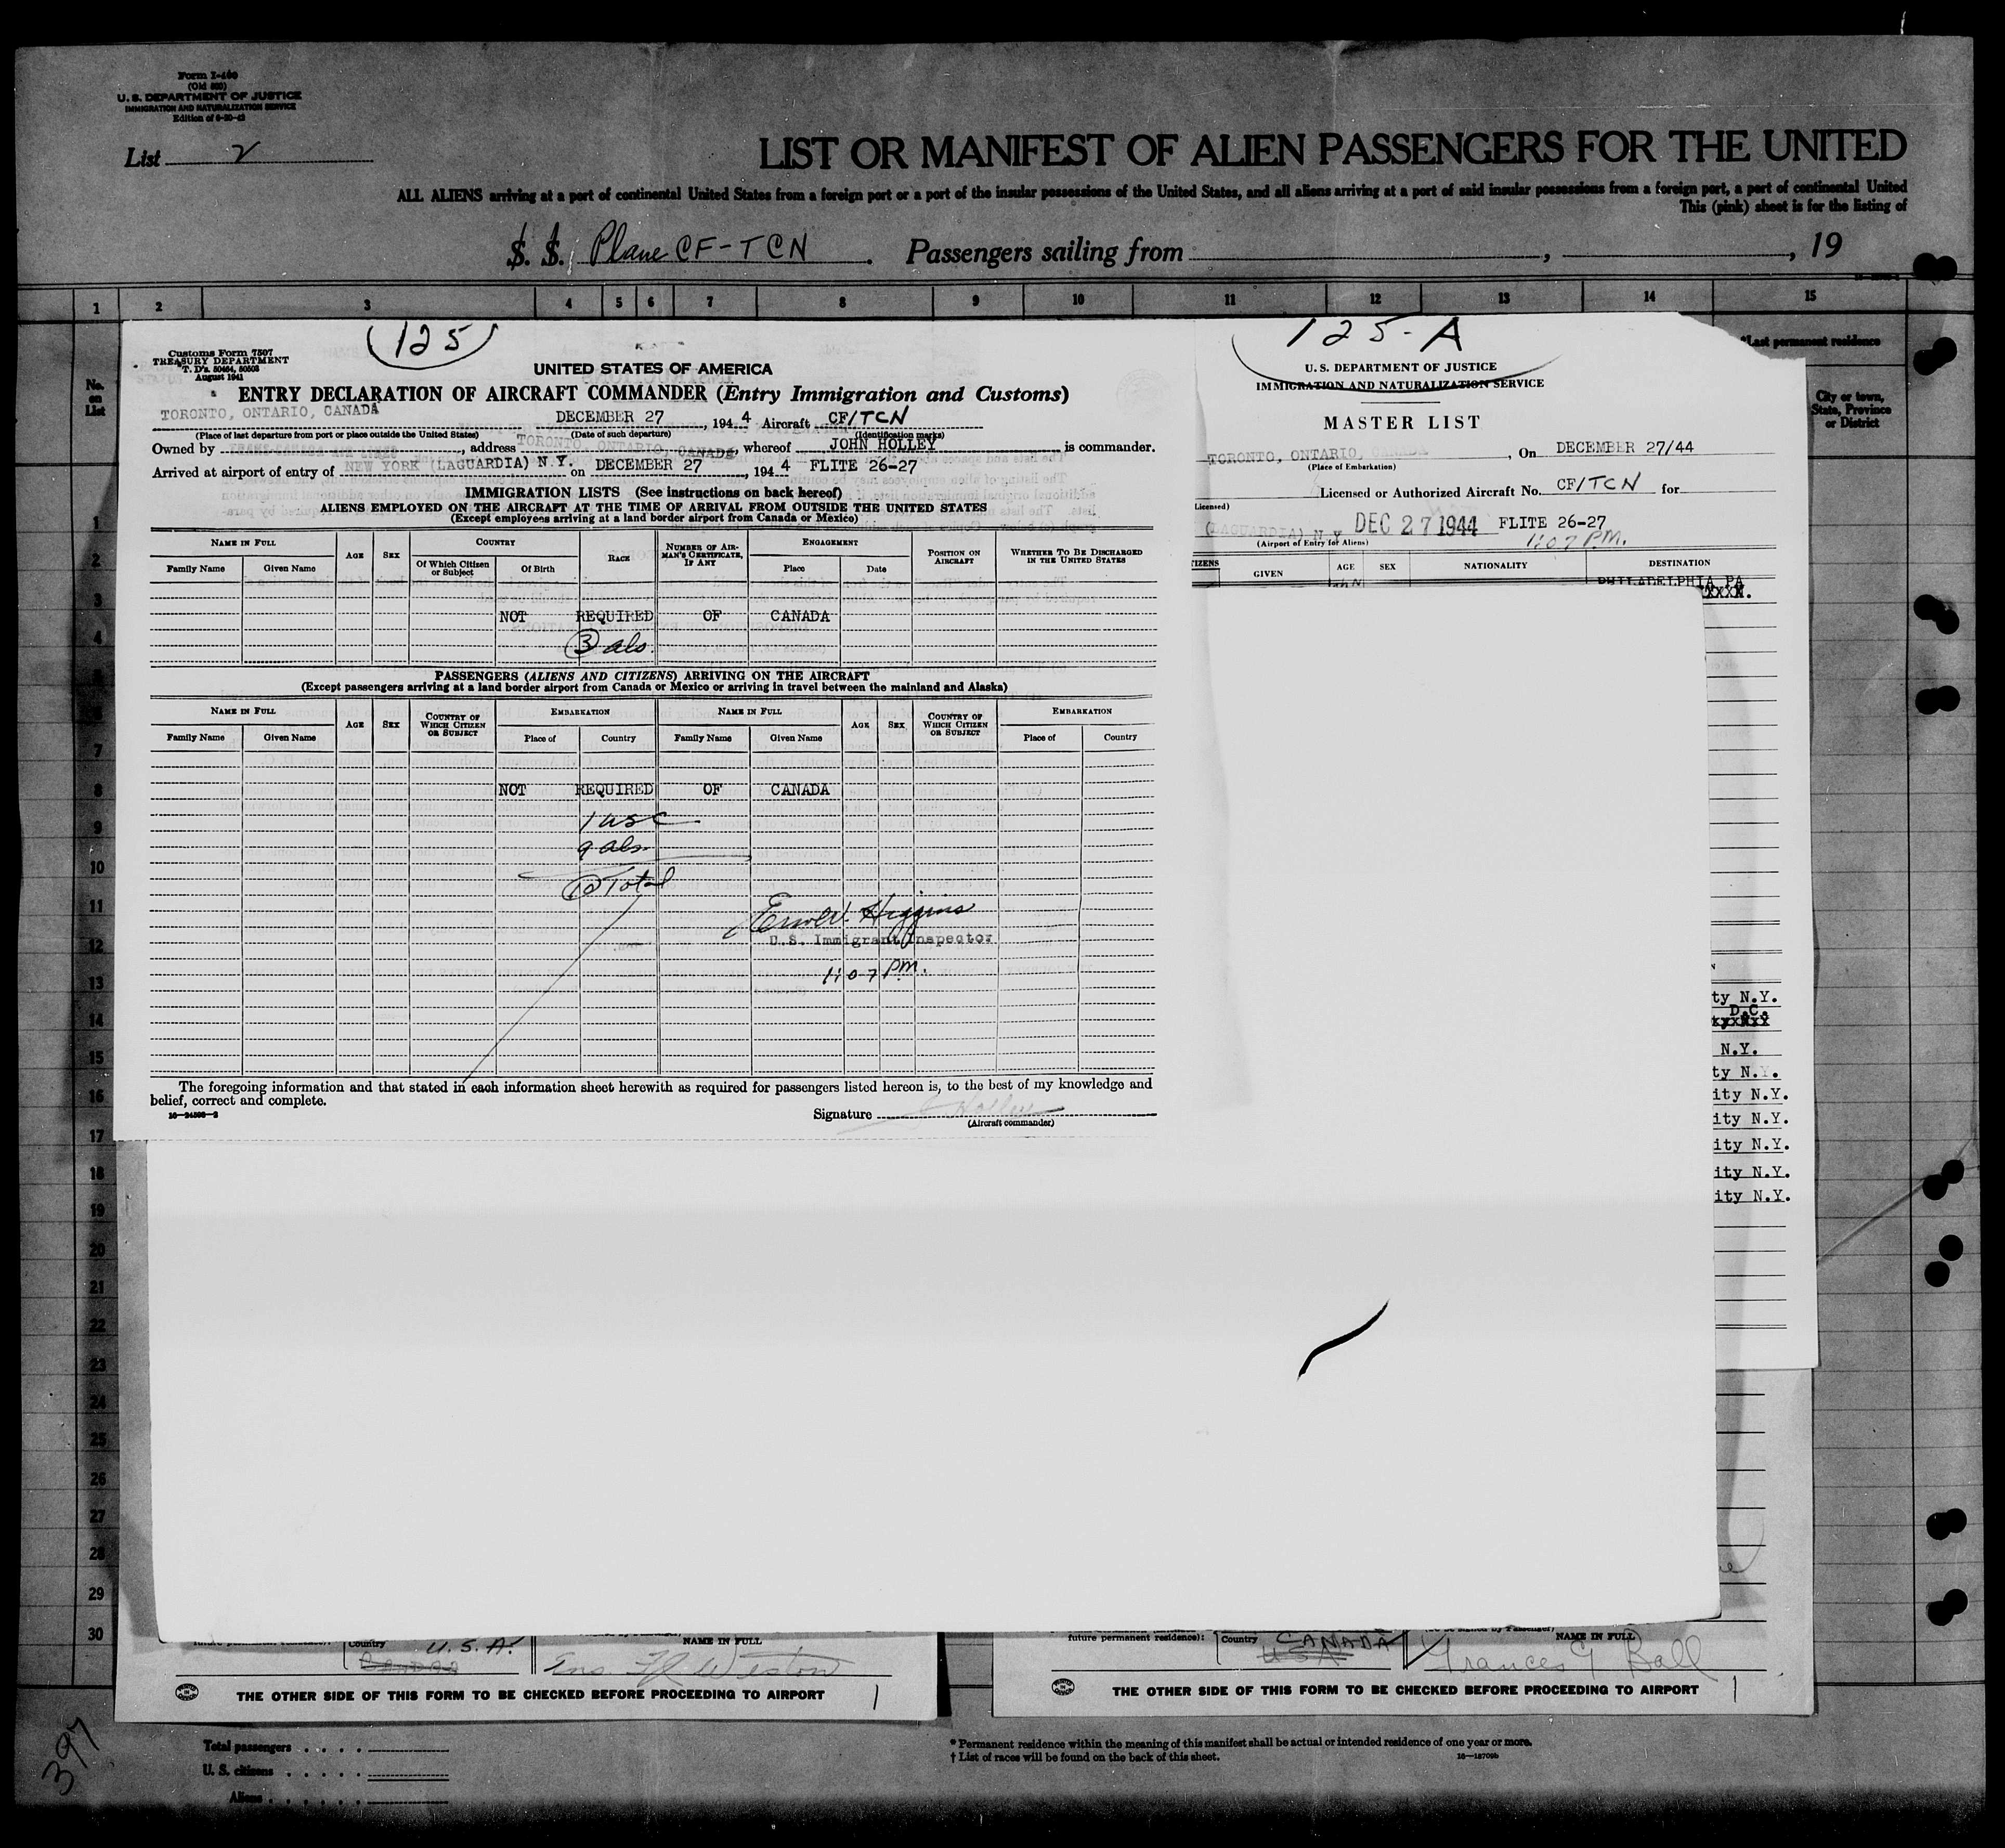 Form I-400
(Old 500)
U. S. DEPARTMENT OF JUSTICE
IMMIGRATION AND NATURALIZATION SERVICE
List 2
LIST OR MANIFEST OF ALIEN PASSENGERS FOR THE UNITED
ALL ALIENS arriving at a port of continental United States from a foreign port or a port of the insular possessions of the United States, and all aliens arriving at a port of said insular possessions from a foreign port, a port of continental United
This (pink) sheet is for the listing of
S. S. Plane CF-TCN . Passengers sailing from , , 19
1 2 3 4 5 6 7 8 9 10 11 12 13 14 15
No. on List
*Last permanent residence
City or town, State, Province or District
125
Customs Form 7507
TREASURY DEPARTMENT
T. D's. 50464, 50503
August 1941
UNITED STATES OF AMERICA
ENTRY DECLARATION OF AIRCRAFT COMMANDER (Entry Immigration and Customs)
TORONTO, ONTARIO, CANADA DECEMBER 27, 1944 Aircraft CF/TCN
(Place of last departure from port or place outside the United States) (Date of such departure) (Identification marks)
Owned by , address TORONTO, ONTARIO, CANADA, whereof JOHN HOLLEY is commander.
Arrived at airport of entry of NEW YORK (LAGUARDIA) N.Y. on DECEMBER 27, 1944 FLITE 26-27
IMMIGRATION LISTS (See instructions on back hereof)
ALIENS EMPLOYED ON THE AIRCRAFT AT THE TIME OF ARRIVAL FROM OUTSIDE THE UNITED STATES
(Except employees arriving at a land border airport from Canada or Mexico)
NAME IN FULL AGE SEX COUNTRY RACE NUMBER OF AIRMAN'S CERTIFICATE, IF ANY ENGAGEMENT POSITION ON AIRCRAFT WHETHER TO BE DISCHARGED IN THE UNITED STATES
Family Name Given Name Of Which Citizen or Subject Of Birth Place Date
NOT REQUIRED OF CANADA
3 als.
PASSENGERS (ALIENS AND CITIZENS) ARRIVING ON THE AIRCRAFT
(Except passengers arriving at a land border airport from Canada or Mexico or arriving in travel between the mainland and Alaska)
NAME IN FULL AGE SEX COUNTRY OF WHICH CITIZEN OR SUBJECT EMBARKATION NAME IN FULL AGE SEX COUNTRY OF WHICH CITIZEN OR SUBJECT EMBARKATION
Family Name Given Name Place of Country Family Name Given Name Place of Country
NOT REQUIRED OF CANADA
1 usc
9 als.
10 Total
Higgins
U.S. Immigrant Inspector
1:07 P.M.
The foregoing information and that stated in each information sheet herewith as required for passengers listed hereon is, to the best of my knowledge and
belief, correct and complete.
Signature J Holley
(Aircraft commander)
125-A
U. S. DEPARTMENT OF JUSTICE
IMMIGRATION AND NATURALIZATION SERVICE
MASTER LIST
TORONTO, ONTARIO, CANADA, On DECEMBER 27/44
(Place of Embarkation)
Licensed or Authorized Aircraft No. CF/TCN for
Licensed)
(LAGUARDIA) N.Y. DEC 27 1944 FLITE 26-27
(Airport of Entry for Aliens) 1:07 P.M.
TIZENS GIVEN AGE SEX NATIONALITY DESTINATION
PHILADELPHIA PA
XXXX.
ty N.Y.
D.C.
N.Y.
ty N.Y.
ity N.Y.
ity N.Y.
ity N.Y.
ity N.Y.
ity N.Y.
1
2
3
4
7
8
9
10
11
12
13
14
15
16
17
18
19
20
21
22
23
24
25
26
27
28
29
30
Country U.S.A. NAME IN FULL
Canada Ens Weston
THE OTHER SIDE OF THIS FORM TO BE CHECKED BEFORE PROCEEDING TO AIRPORT 1
future permanent residence): Country CANADA NAME IN FULL
USA Frances G Ball
THE OTHER SIDE OF THIS FORM TO BE CHECKED BEFORE PROCEEDING TO AIRPORT 1
397
Total passengers
U. S. citizens
Aliens
* Permanent residence within the meaning of this manifest shall be actual or intended residence of one year or more.
† List of races will be found on the back of this sheet.